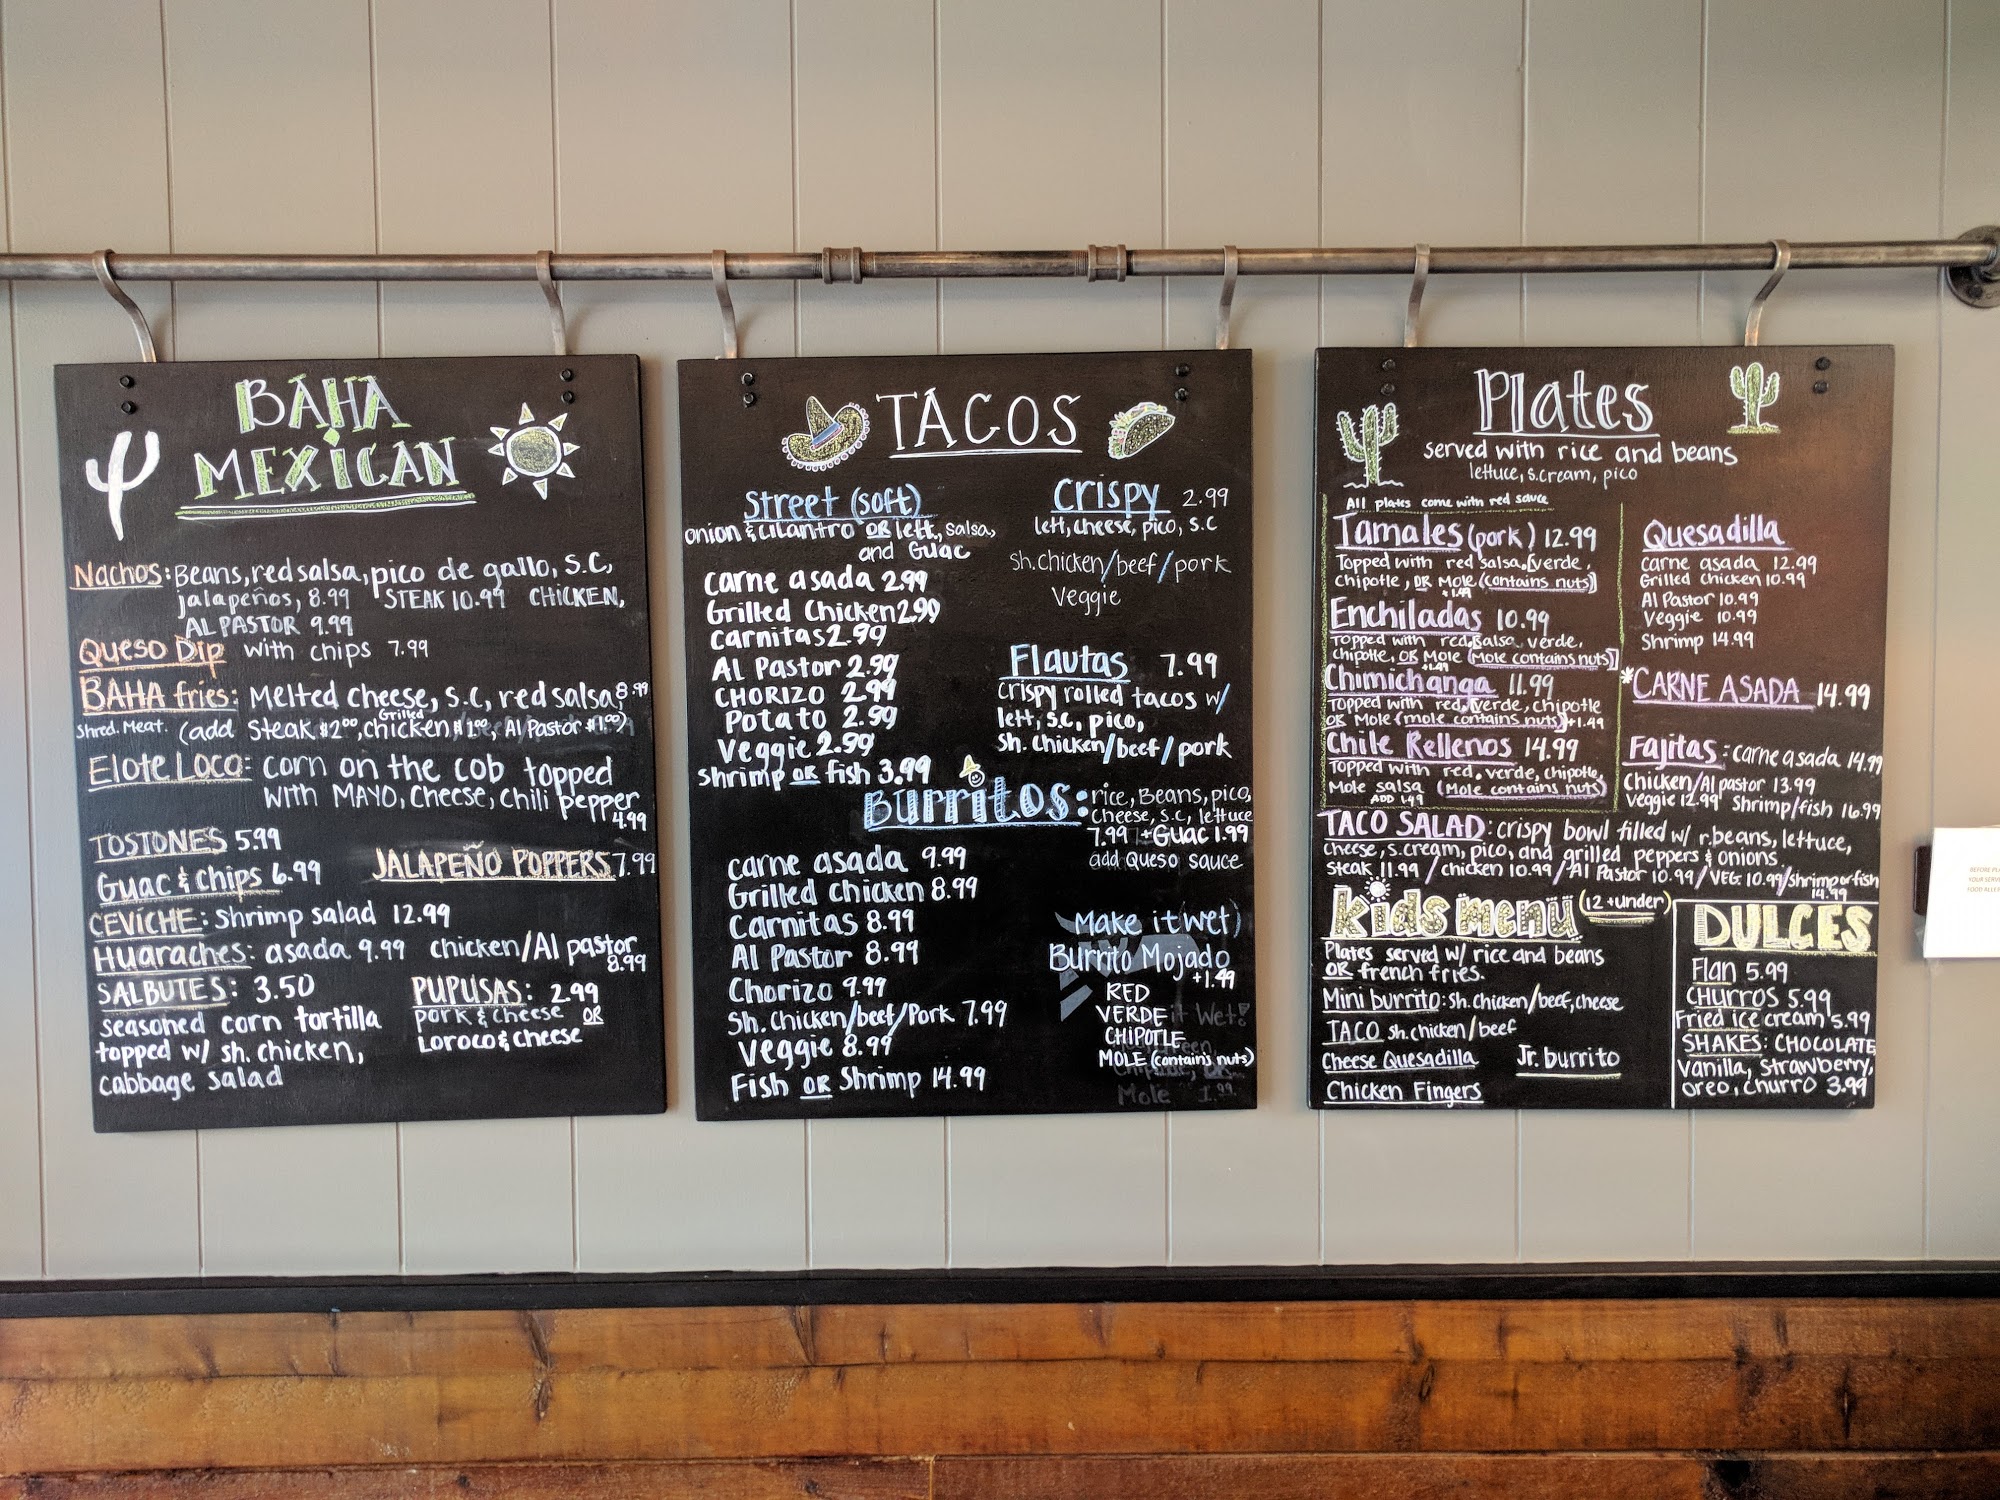 BAHA
MEXICAN
Nachos: Beans, red salsa, pico de gallo, S.C,
jalapeños, 8.99 STEAK 10.99 CHICKEN,
AL PASTOR 9.99
Queso Dip with chips 7.99
BAHA fries: Melted cheese, s.c, red salsa, 8.99
Shred. Meat. (add Steak $2.00, Grilled chicken $1.00, Al Pastor $1.00)
Elote Loco: corn on the cob topped
with MAYO, cheese, chili pepper
4.99
TOSTONES 5.99
JALAPEÑO POPPERS 7.99
Guac & chips 6.99
CEVICHE: shrimp salad 12.99
Huaraches: asada 9.99 chicken/Al pastor
8.99
SALBUTES: 3.50
seasoned corn tortilla
topped w/ sh. chicken,
cabbage salad
PUPUSAS: 2.99
pork & cheese OR
Loroco & cheese
TACOS
Street (soft)
onion & cilantro OR lett, salsa,
and Guac
carne asada 2.99
Grilled Chicken 2.99
carnitas 2.99
Al Pastor 2.99
CHORIZO 2.99
Potato 2.99
Veggie 2.99
shrimp OR fish 3.99
Crispy 2.99
lett, cheese, pico, s.c
sh. chicken/beef/pork
Veggie
Flautas 7.99
crispy rolled tacos w/
lett, s.c, pico,
sh. chicken/beef/pork
Burritos: rice, Beans, pico,
cheese, s.c, lettuce
7.99 + Guac 1.99
add Queso sauce
carne asada 9.99
Grilled chicken 8.99
Carnitas 8.99
Al Pastor 8.99
Chorizo 9.99
Sh. Chicken/beef/Pork 7.99
Veggie 8.99
Fish OR Shrimp 14.99
Make it wet)
Burrito Mojado
+1.49
RED
VERDE
CHIPOTLE
MOLE (contains nuts)
it Wet!
Mole 1.99
Plates
served with rice and beans
lettuce, s.cream, pico
All plates come with red sauce
Tamales (pork) 12.99
Topped with red salsa, [verde,
Chipotle, OR Mole (contains nuts)]
+1.49
Enchiladas 10.99
Topped with red salsa, verde,
chipotle, OR Mole (Mole contains nuts)]
+1.49
Chimichanga 11.99
Topped with red, [verde, chipotle
OR Mole (mole contains nuts)] +1.49
Chile Rellenos 14.99
Topped with red, verde, chipotle,
Mole salsa (Mole contains nuts)
ADD 1.49
Quesadilla
carne asada 12.99
Grilled chicken 10.99
Al Pastor 10.99
Veggie 10.99
Shrimp 14.99
*CARNE ASADA 14.99
Fajitas: carne asada 14.99
Chicken/Al pastor 13.99
Veggie 12.99 Shrimp/fish 16.99
TACO SALAD: crispy bowl filled w/ r.beans, lettuce,
cheese, s.cream, pico, and grilled peppers & onions
Steak 11.99 / chicken 10.99 / Al Pastor 10.99 / VEG. 10.99 / shrimp or fish
14.99
kids menu (12 + under)
Plates served w/ rice and beans
OR french fries.
Mini burrito: sh. chicken/beef, cheese
TACO sh. chicken/beef
Cheese Quesadilla
Jr. burrito
Chicken Fingers
DULCES
Flan 5.99
Churros 5.99
Fried ice cream 5.99
SHAKES: CHOCOLATE
vanilla, strawberry,
oreo, churro 3.99
BEFORE
YOUR
FOOD